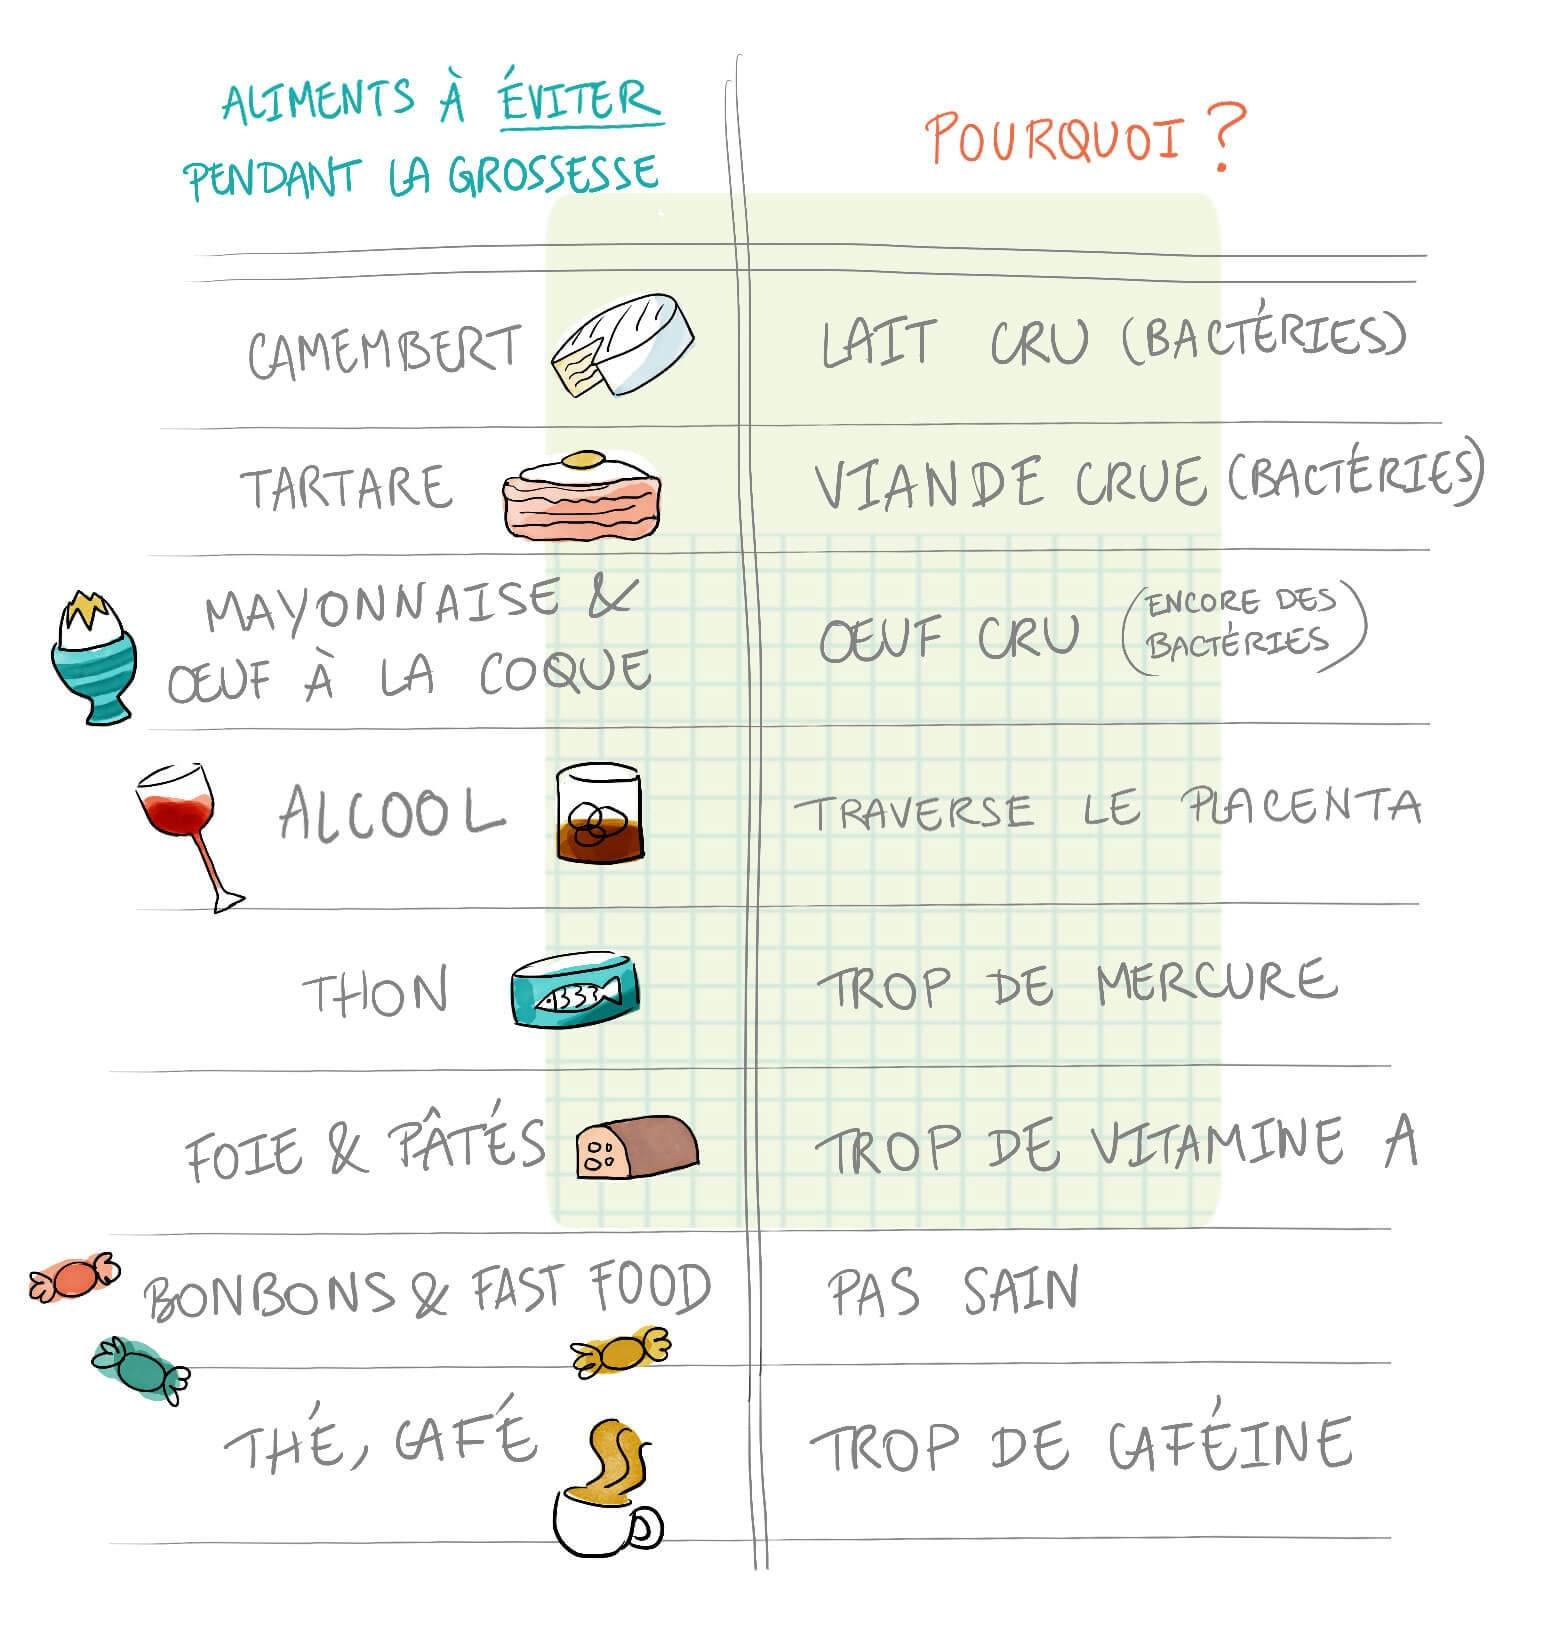 ALIMENTS À ÉVITER
PENDANT LA GROSSESSE
POURQUOI ?
CAMEMBERT
LAIT CRU (BACTÉRIES)
TARTARE
VIANDE CRUE (BACTÉRIES)
MAYONNAISE &
ŒUF À LA COQUE
ŒUF CRU (ENCORE DES
BACTÉRIES)
ALCOOL
TRAVERSE LE PLACENTA
THON
TROP DE MERCURE
FOIE & PÂTÉS
TROP DE VITAMINE A
BONBONS & FAST FOOD
PAS SAIN
THÉ, CAFÉ
TROP DE CAFÉINE